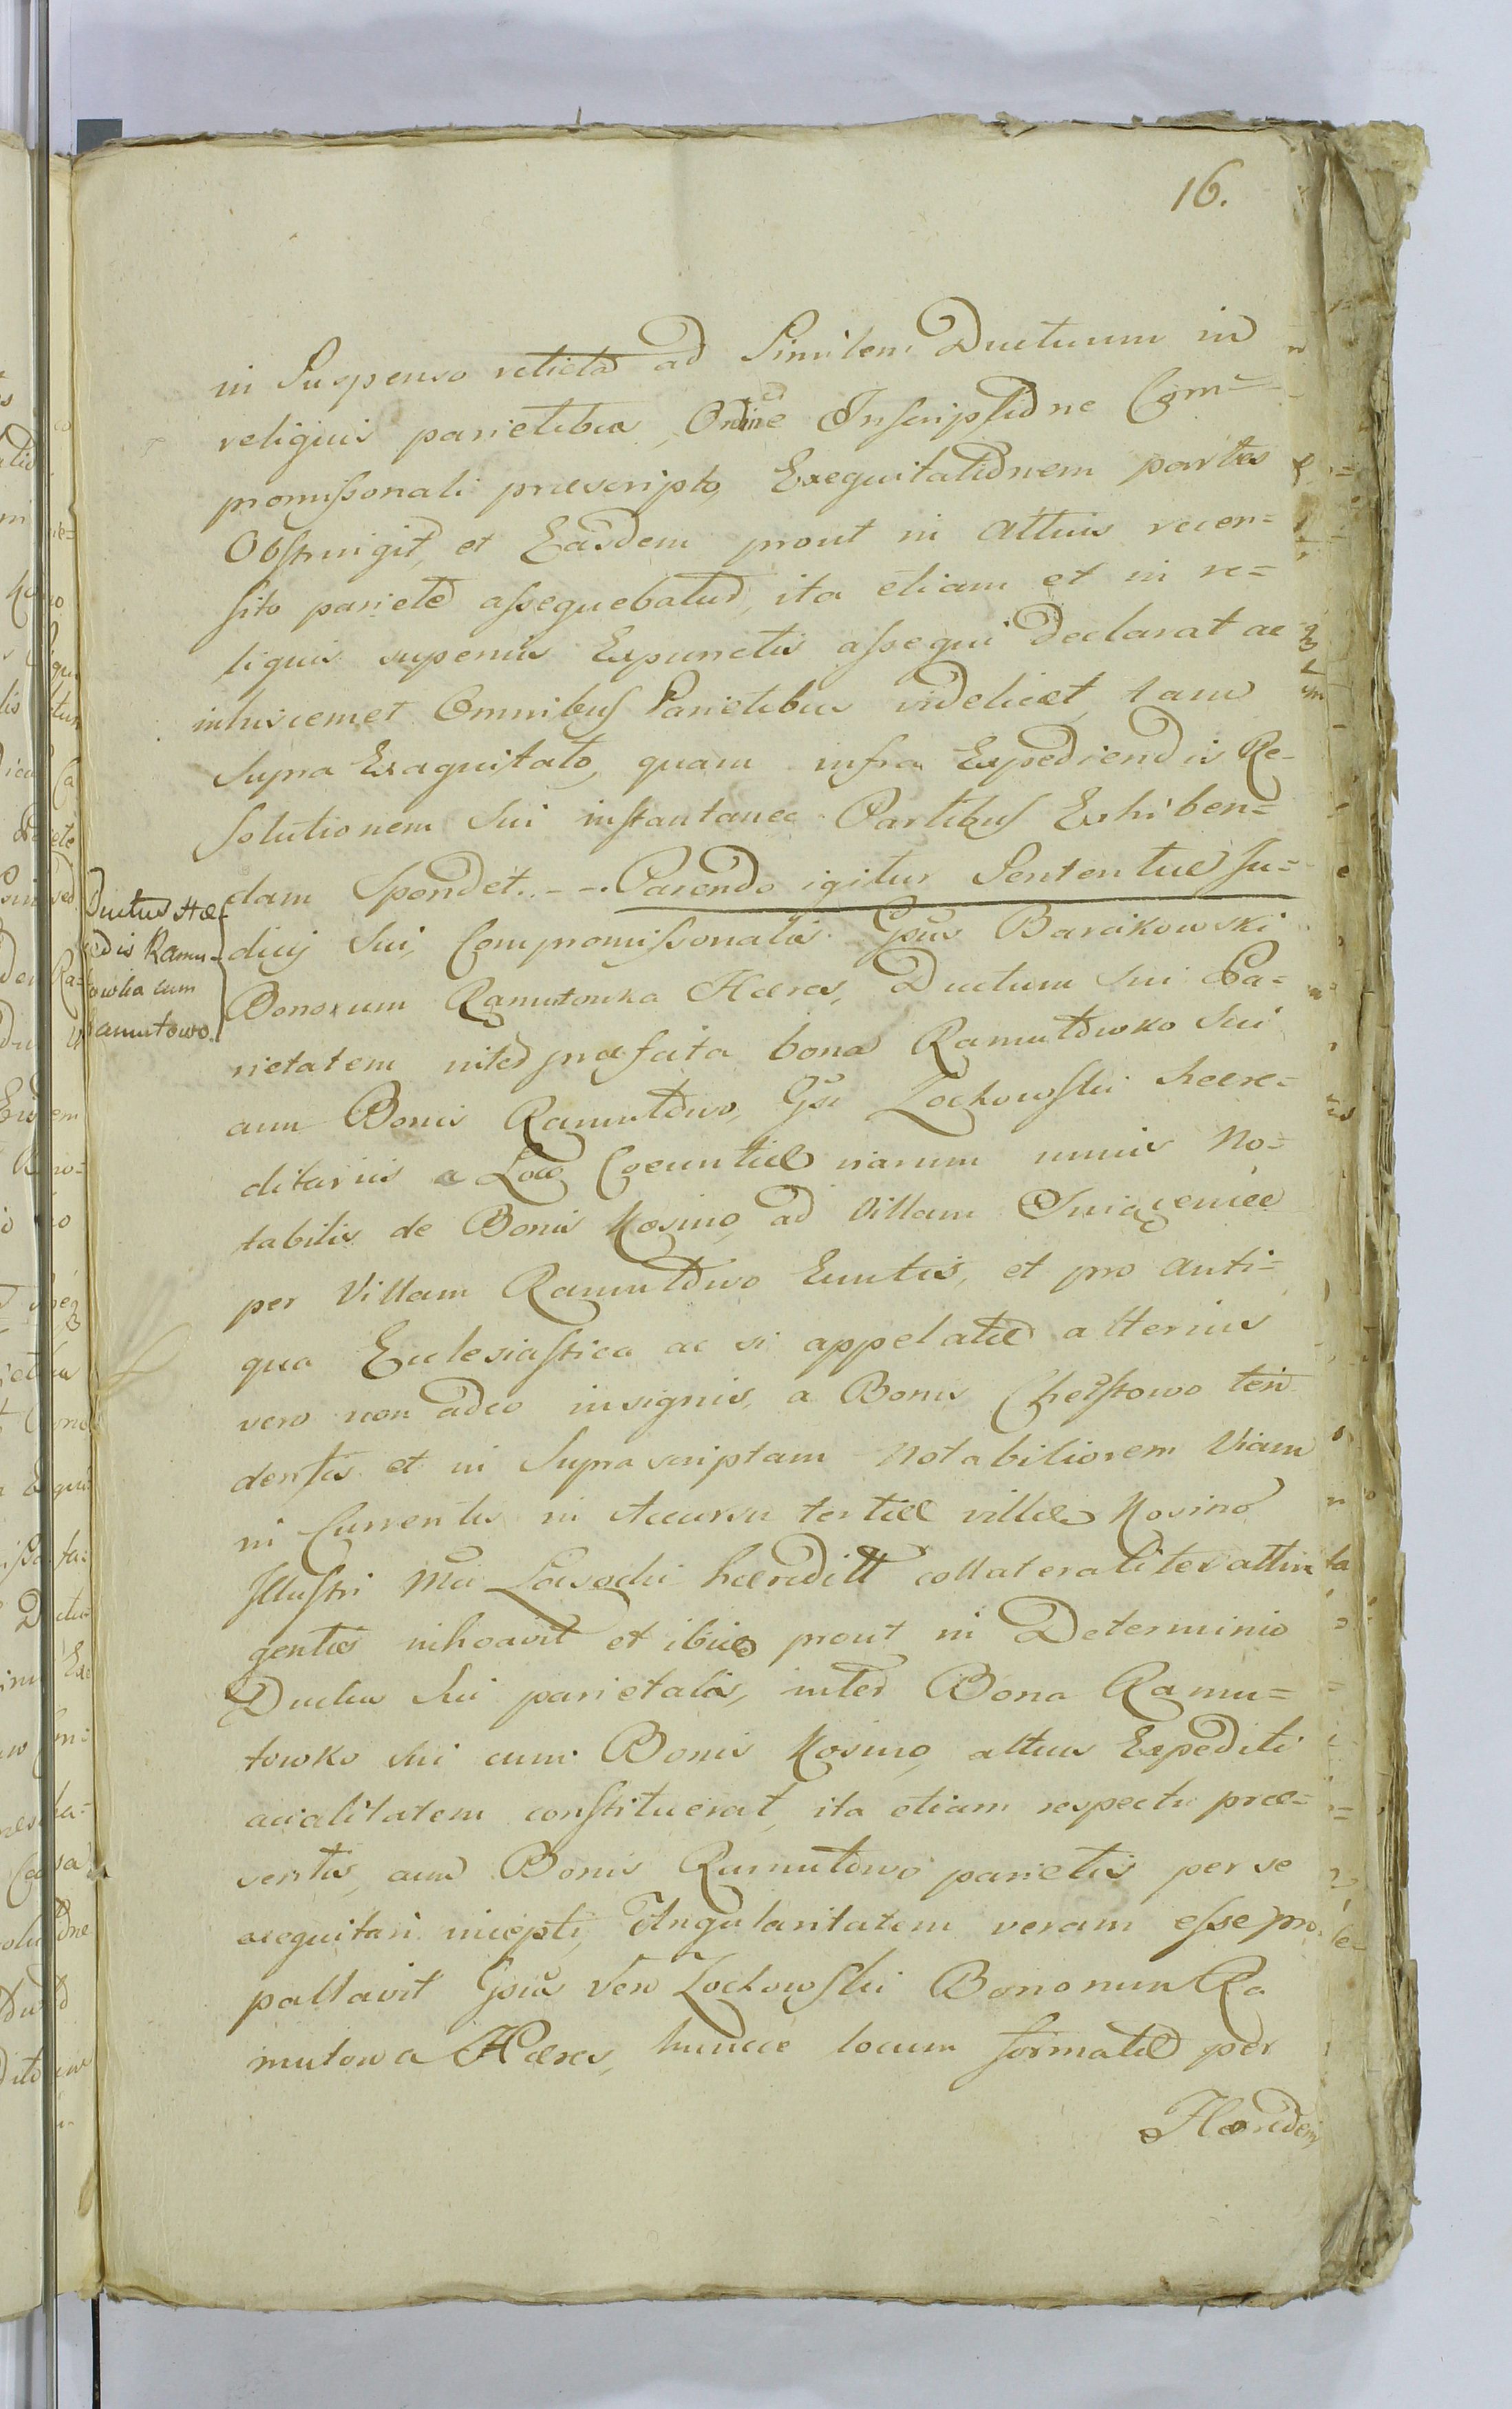 16.
in Suspenso relicta ad Similem Ductuum in
reliquis parietibus, Ordine Inscriptione Com=
promissonali præscripto, Exequitationem partes
Obstringit, et Easdem prout in altius recen=
sito pariete assequebatur, ita etiam et in re=
liquis superius Expunctis assequi declarat ac
inhuicemet Omnibus Parietibus videlicet, tam
supra Exaquitato, quam infra Expediendis Re-
solutionem sui instantanee Partibus Exhiben=
dam Spondet. - -. Parendo igitur Sententiæ Ju=
Ductus Hæ
edis Ramu-
towka cum
Ramutowo.
dicij sui, Compromissonalis Gsus Barcikowski
Bonorum Ramutowka Hæres, Ductum sui Pa=
rietatem inter præfata bona Ramutowko sui
cum Bonis Ramutowo, Gsi Zochowski hære=
ditariis a Loco Coeuntiæ viarum unius No=
tabilis de Bonis Kosino, ad Villam
per Villam Ramutowo Euntis, et pro anti=
qua Ecclesiastica ac si appelatæ alterius
vero non adeo insignis, a Bonis Chełstowo ten
dentis et in Suprascriptam Notabiliorem Viam
in Currentis in Accursu tertiæ villæ Kosino
Illustri Mci hæreditt collateraliter attin
gentis inhoavit et ibice prout in Determinio
Ductus sui parietalis, inter Bona Ramu=
towko sui cum Bonis Kosino, altius Expediti
acialitatem constituerat, ita etiam respectu præ=
sentis, cum Bonis Ramutowo parietis per se
exequitari incepti, Angularitatem veram esse pro
pallavit Gsus Vero Zochowski Bonorum Ra
mutowa Hæres, huncce locum formatæ per
Hæredem